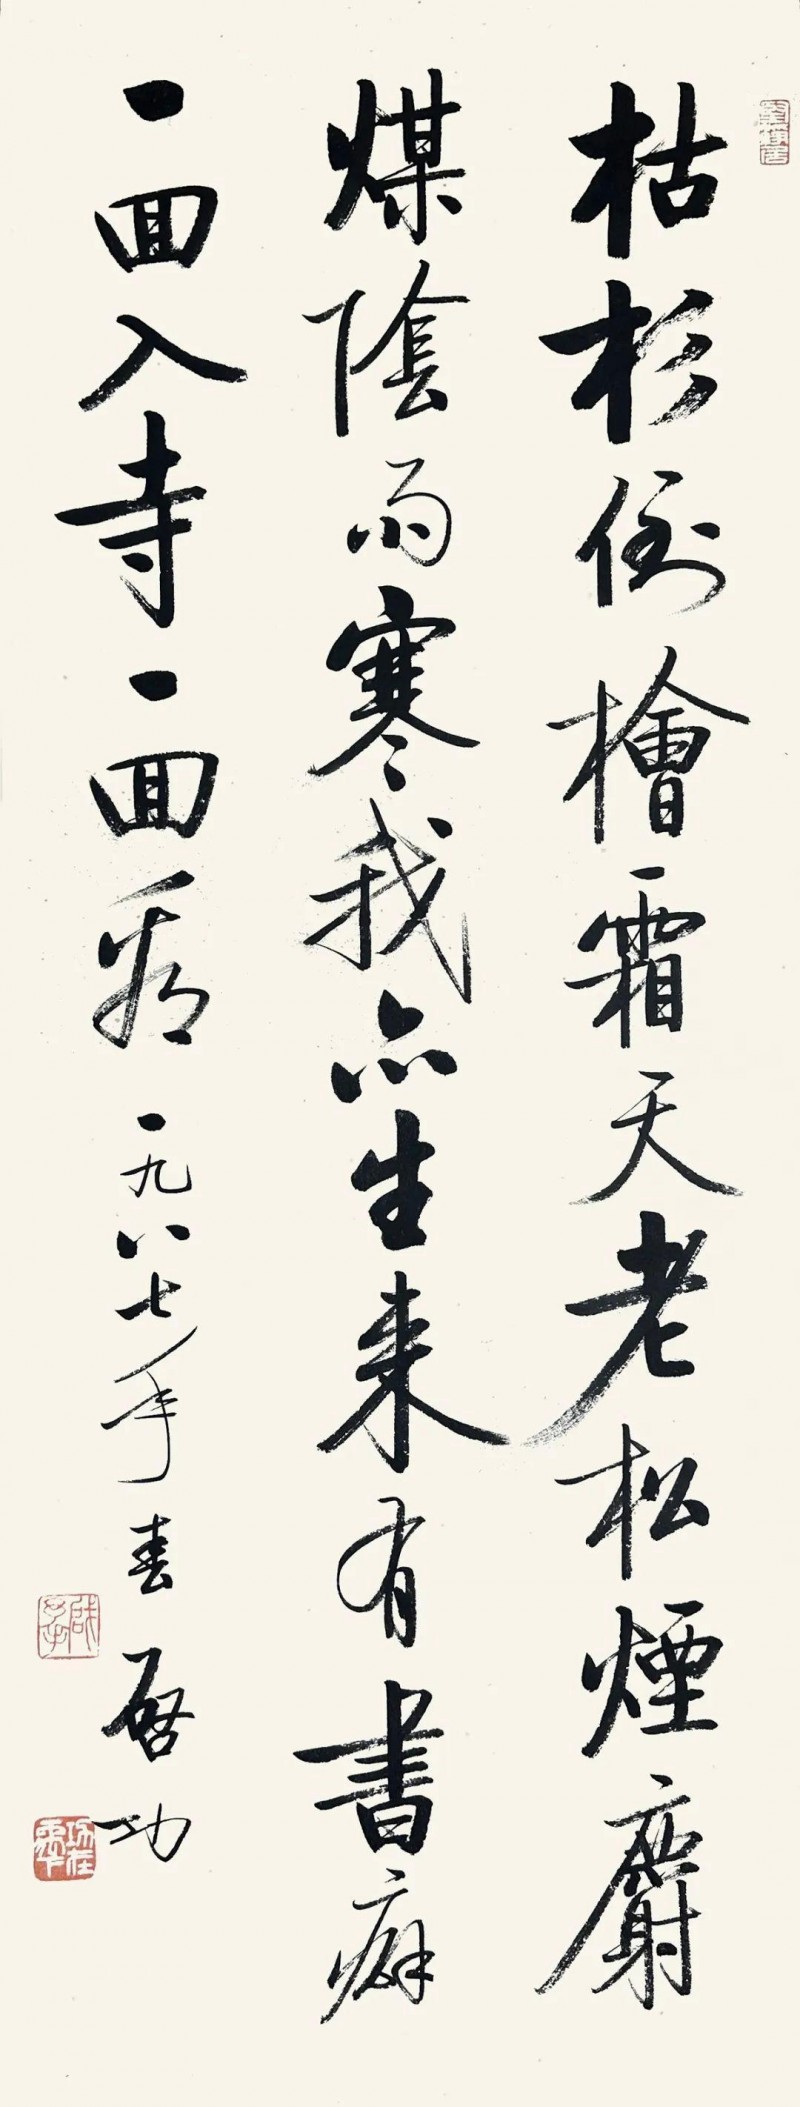 枯杉倒檜霜天老松煙麝
煤陰雨寒我亦生來有書癖
一回入寺一回看 一九八七年春 啟功